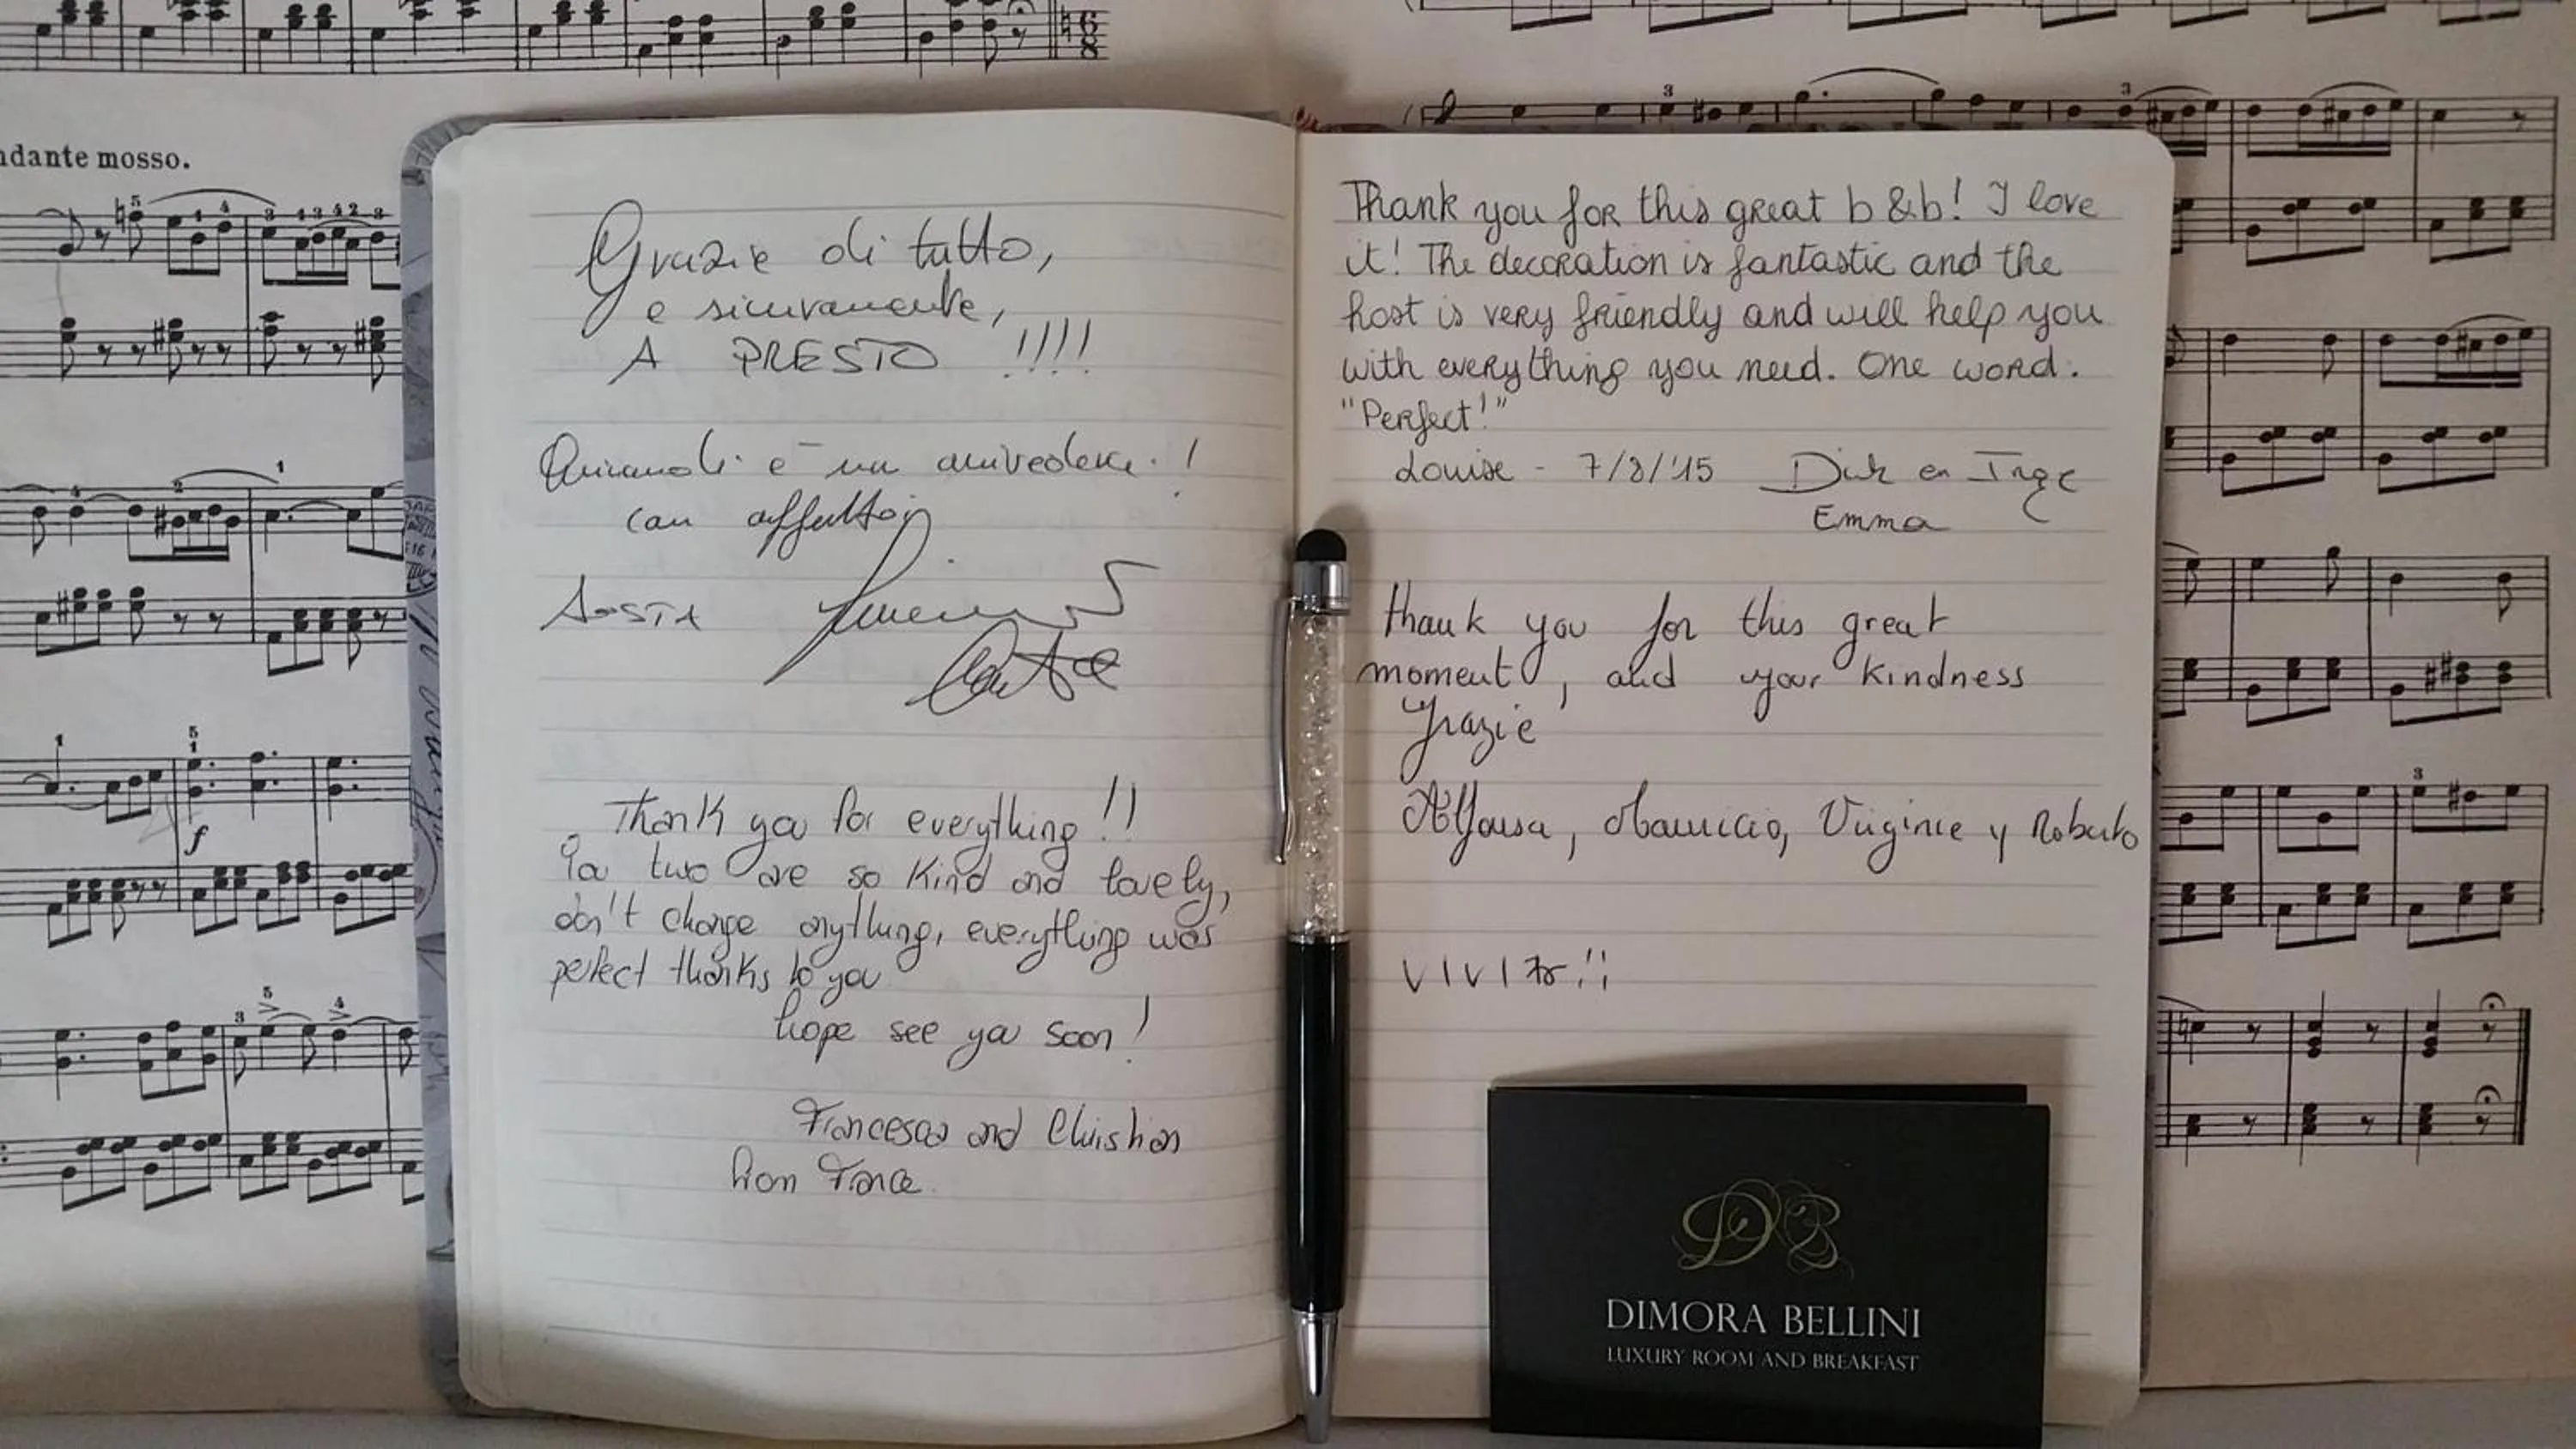 6
8
ndante mosso.
Grazie di tutto,
e sicuramente,
A PRESTO !!!!
Quindi è un arrivederci!
con affetto,
AOSTA
Thank you for everything!!
You two are so kind and lovely,
don't change anything, everything was
perfect thanks to you
hope see you soon!
Francesca and Christian
from France.
Thank you for this great b&b! I love
it! The decoration is fantastic and the
host is very friendly and will help you
with everything you need. One word:
"Perfect!"
Louise - 7/8/'15 Dirk en Inge
Emma
thank you for this great
moment, and your kindness
Grazie
Mauricio, Virginie y Roberto
DB
DIMORA BELLINI
LUXURY ROOM AND BREAKFAST